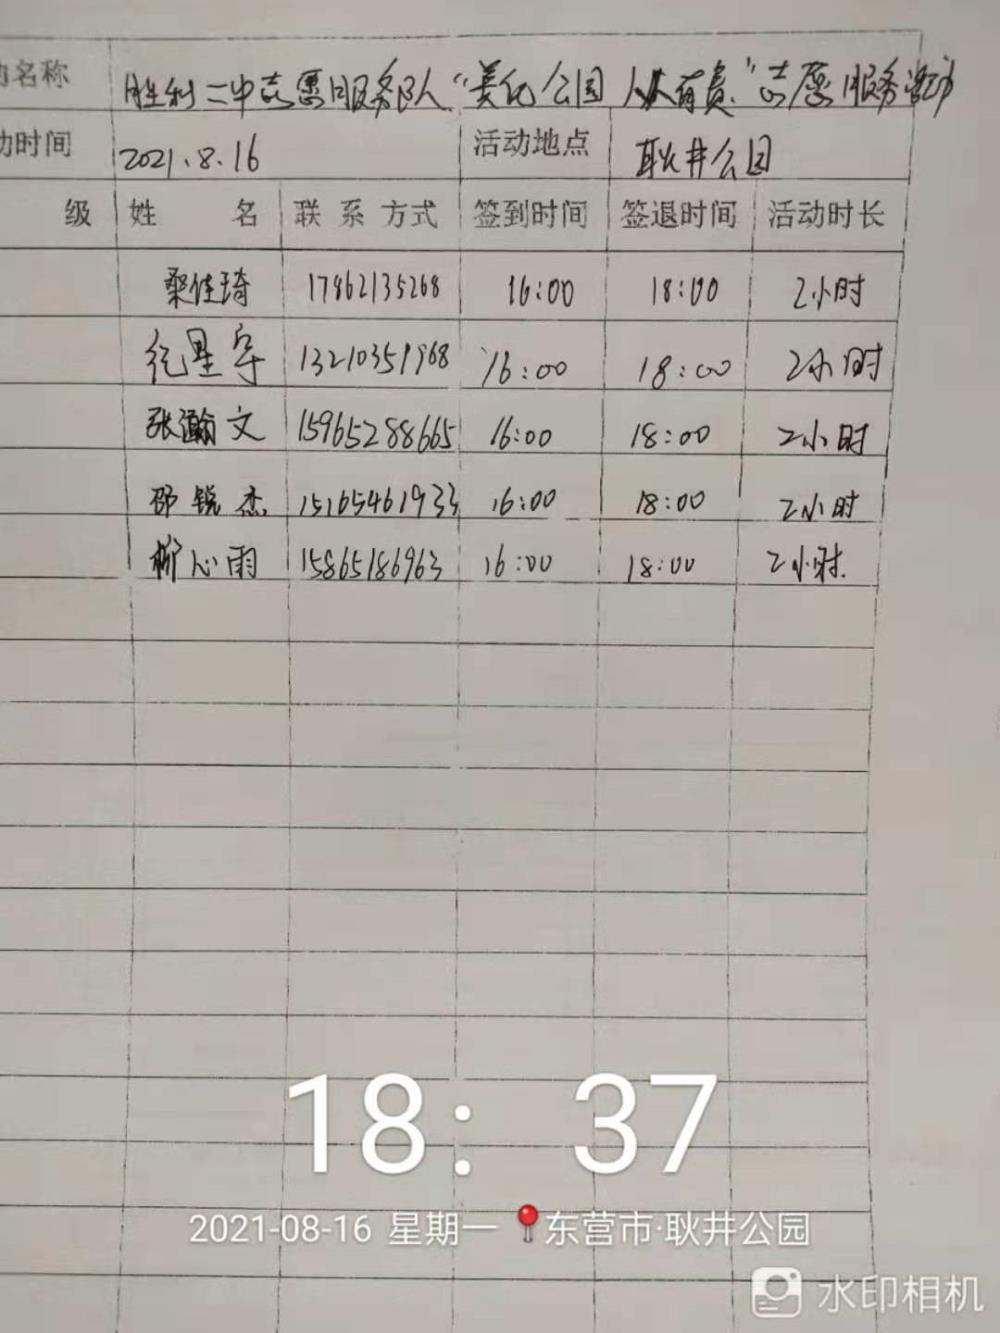 动名称 胜利二中志愿服务队“美化公园 人人有责”志愿服务活动
动时间 2021.8.16 活动地点 耿井公园
级 姓 名 联系方式 签到时间 签退时间 活动时长
桑佳琦 17862135268 16:00 18:00 2小时
纪星宇 13210351968 16:00 18:00 2小时
张瀚文 15965288665 16:00 18:00 2小时
邵锐杰 15165461933 16:00 18:00 2小时
心雨 15865186963 16:00 18:00 2小时.
18:37
2021-08-16 星期一 东营市·耿井公园
水印相机